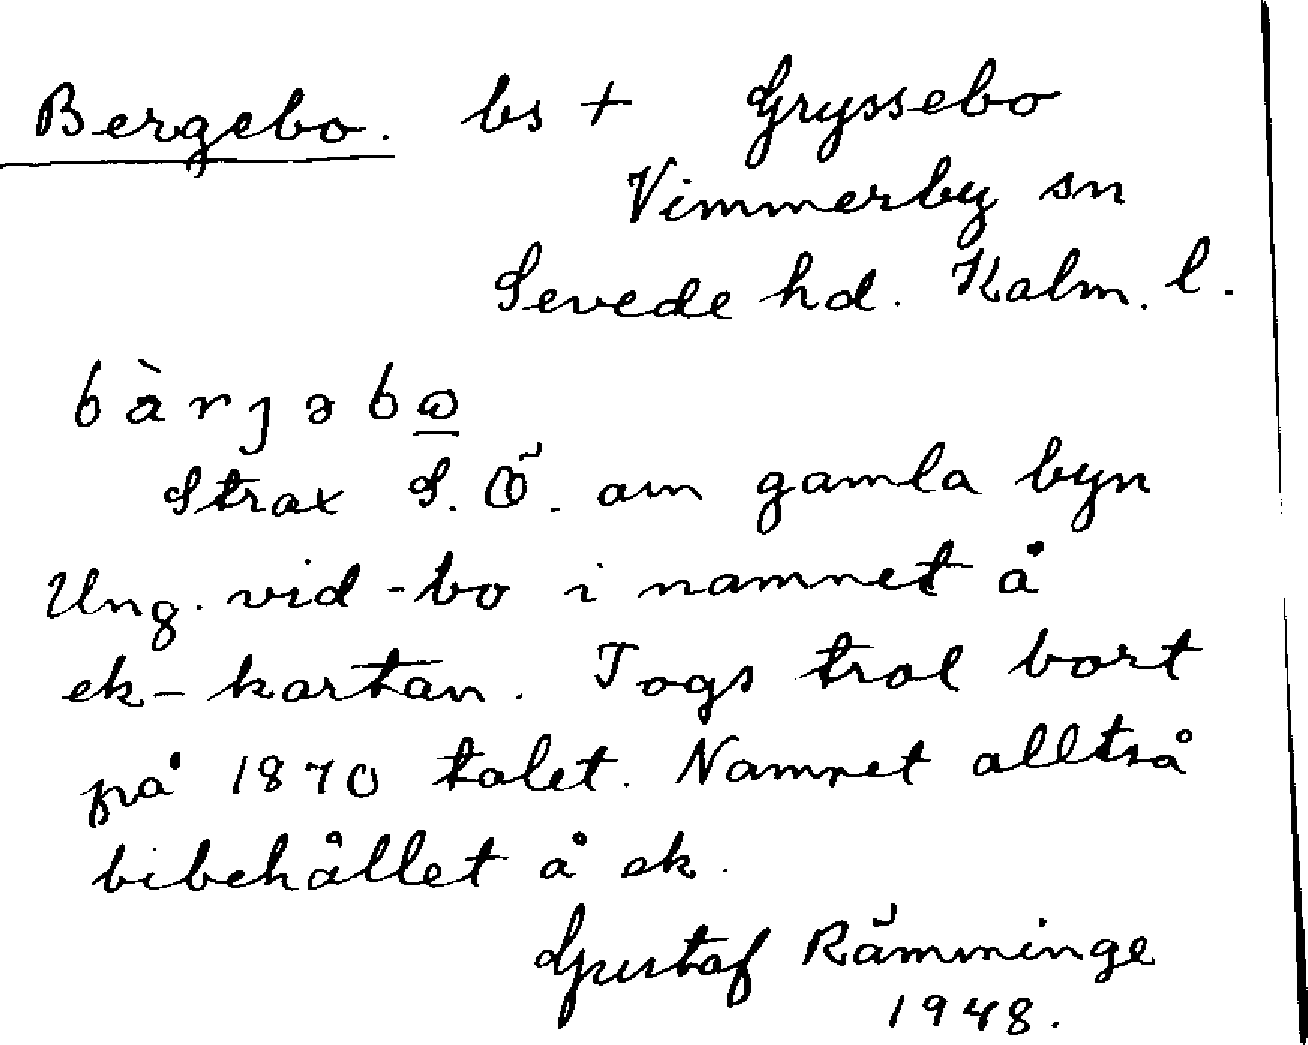 Bergebo. bs + Gryssebo
Vimmerby sn
Sevede hd. Kalm. l.
bàrȷəbω
Strax S. Ö. om gamla byn
Ung. vid -bo i namnet å
ek-kartan. Togs trol bort
på 1870 talet. Namnet alltså
bibehållet å ek.
Gustaf Rämminge
1948.